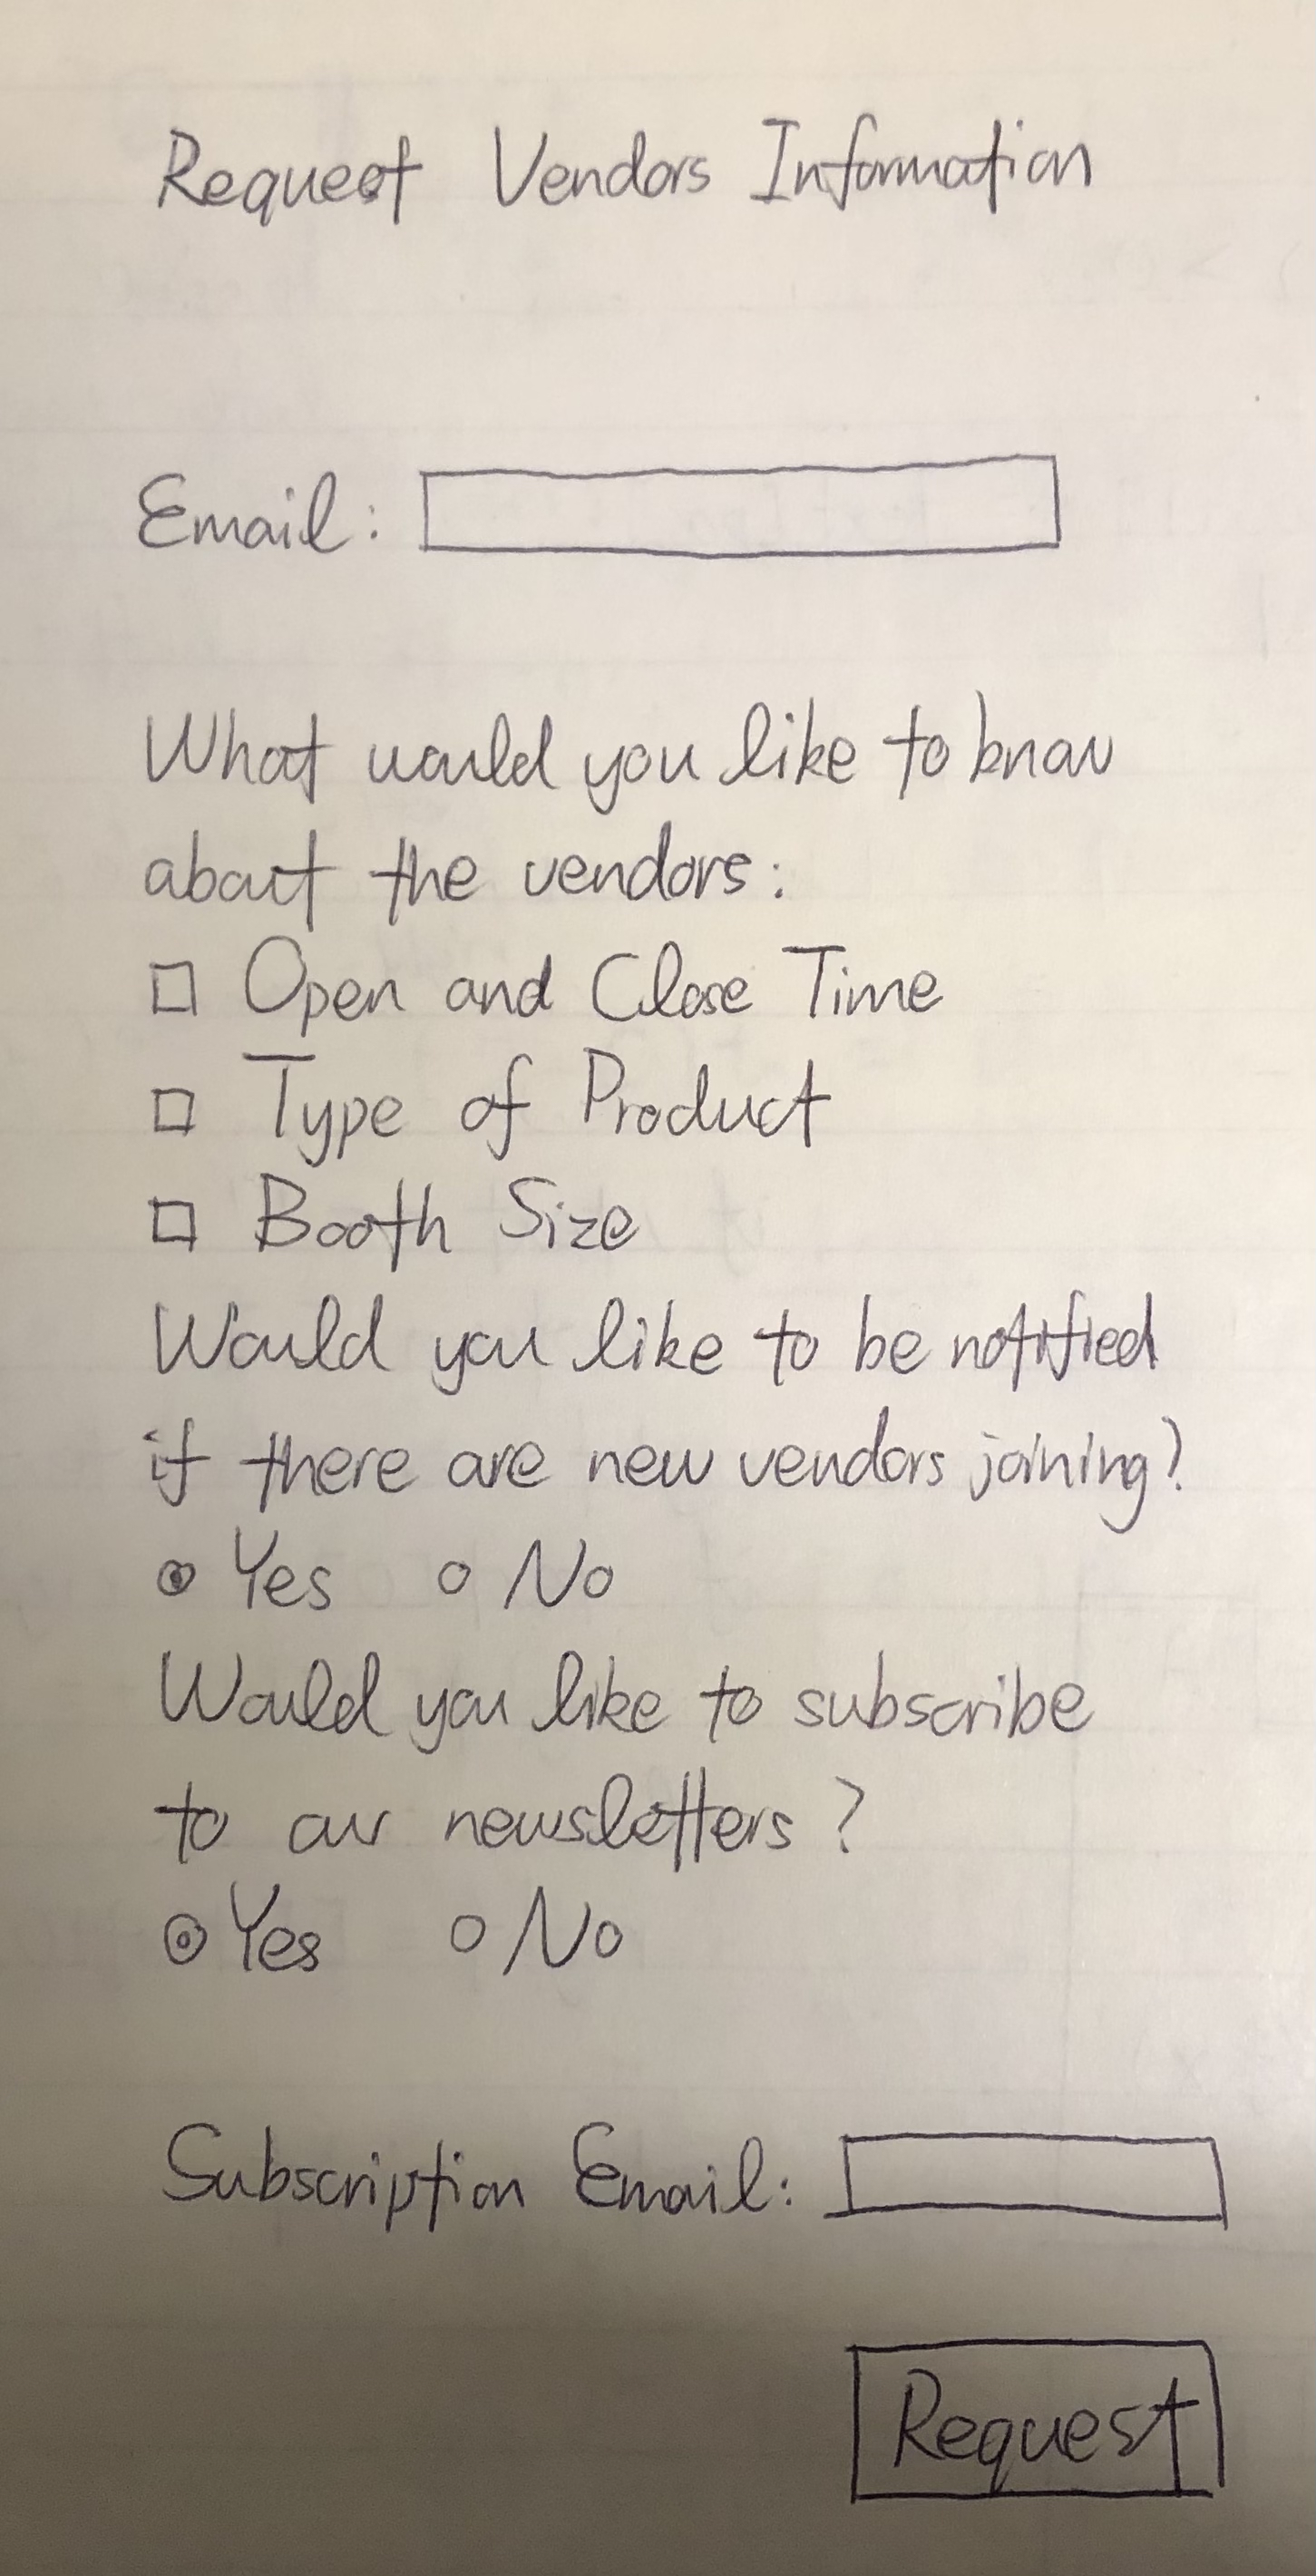 Request Vendors Information
Email:
What would you like to know
about the vendors:
Open and Close Time
Type of Product
Booth Size
Would you like to be notified
if there are new vendors joining?
Yes No
Would you like to subscribe
to our newsletters?
Yes No
Subscription Email:
Request